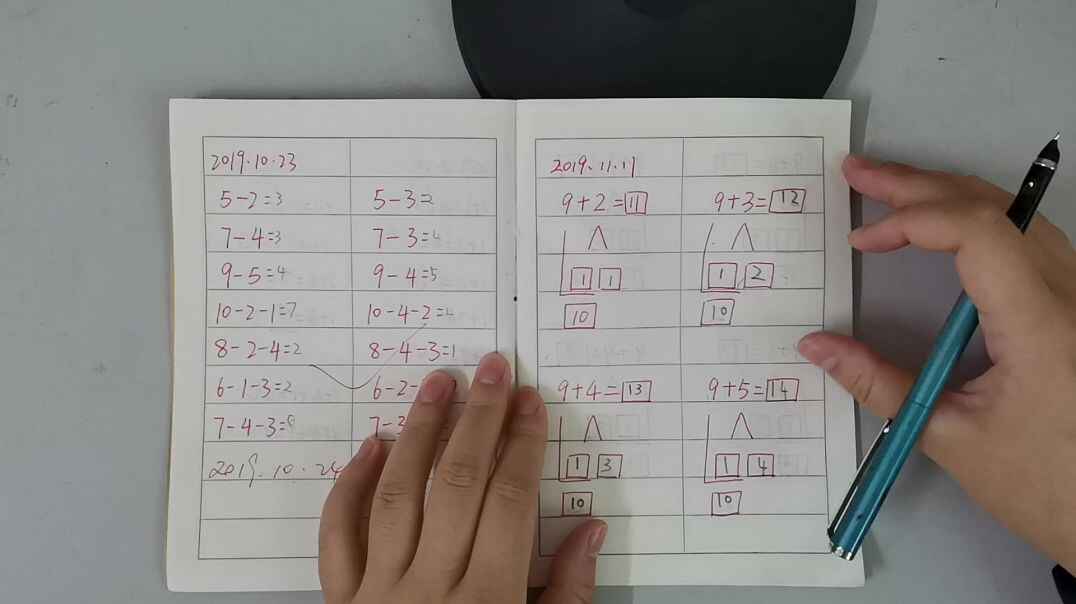 2019.10.23
5-2=3 5-3=2
7-4=3 7-3=4
9-5=4 9-4=5
10-2-1=7 10-4-2=4
8-2-4=2 8-4-3=1
6-1-3=2 6-2-
7-4-3=0 7-3
2019.10.24
2019.11.11
9+2=11 9+3=12
1 1 1 2
10 10
9+4=13 9+5=14
1 3 1 4
10 10